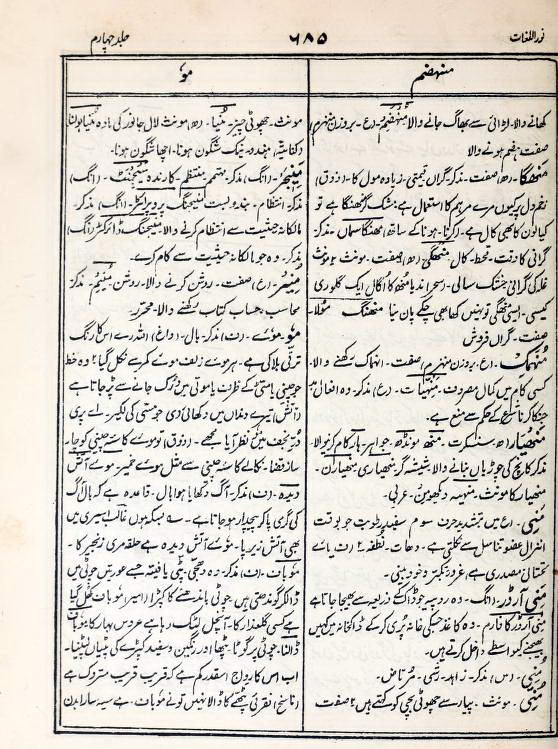 نور اللغات ۶۸۵ جلد چہارم
منہضم
کھانے والا۔ لڑائی سے بھاگ جانے والا۔ منہضم۔ (ع۔ بروزن منہزم)
صفت۔ ہضم ہونے والا
منہگا۔ (ھ) صفت۔ مذکر۔ گراں قیمتی۔ زیادہ مول کا۔ (ذوق)
زخم دل پر کیوں مرے مرہم کا استعمال ہے؛ مشک گر منہگا ہے تو
کیا لون کا بھی کال ہے۔ (کرنا۔ ہونا کے ساتھ) منہگا سماں۔ مذکر۔
گرانی کا وقت۔ قحط۔ کال۔ منہگی۔ (ھ) صفت۔ مونث ۲ مونث
غلہ کی گرانی۔ خشک سالی۔ (سحر) ندیا منھ کا اگال ایک گلوری
کیسی۔ ایسی منہگی تو نہیں کھا بھی چکے پان نیا
صفت۔ گراں فروش
منہمک۔ (ع۔ بروزن منہزم) صفت۔ انہماک رکھنے والا۔
کسی کام میں کمال مصروف۔ منہیات۔ (ع) مذکر۔ وہ افعال
جنکا کرنا شرع کے حکم سے منع ہے۔
منہیار۔ (ھ۔ سنسکرت۔ جواہر۔ ہار۔ کام کرنیوالا)
مذکر۔ کانچ کی چوڑیاں بنانے والا۔ شیشہ گر۔ منہیاری۔ منہیارن۔
منہیار کا مونث۔ منہیہ۔ دیکھو منہیں۔ عربی۔
منی۔ (ع میں تشدید حرف سوم) سفید رطوبت جو بوقت
انزال عضو تناسل سے نکلتی ہے۔ دھات۔ نطفہ ۲ (ف۔ یائے
تحتانی مصدری ہے) غرور۔ تکبر۔ خود بینی۔
منی آرڈر۔ (انگ)۔ وہ روپیہ جو ڈاک کے ذریعہ سے بھیجا جاتا ہے
منی آرڈر کا فارم۔ وہ کاغذ جسکی خانہ پری کر کے ڈاکخانہ میں کہیں
بھیجنے کیواسطے داخل کرتے ہیں۔
منی۔ (س) مذکر۔ زاہد۔ رشی۔ مرتاض۔
منی۔ مونث۔ پیار سے چھوٹی بچی کو کہتے ہیں ۲ صفت
مو
مونث۔ چھوٹی چیز۔ منیا۔ (ھ) مونث۔ لال جانور کی مادہ۔ منیا بولنا۔
(کنایۃً) ہندو۔ نیک شگون ہونا۔ اچھا شگون ہونا۔
مینیجر۔ (انگ) مذکر۔ مہتمم۔ منتظم۔ کارندہ۔ (انگ)
مذکر۔ انتظام۔ بندوبست۔ منیجنگ پروپرائٹر۔ (انگ) مذکر۔
مالکانہ حیثیت سے انتظام کرنے والا۔ منیجنگ ڈائرکٹر۔ (انگ)
مذکر۔ وہ جو مالکانہ حیثیت سے کام کرے۔
منیر۔ (ع) صفت۔ روشن کرنے والا۔ روشن۔ منیم۔ مذکر
محاسب۔ حساب کتاب رکھنے والا۔ محرر۔
مو۔ موئے۔ (ف) مذکر۔ بال۔ (داغ) اللہ رے اس کا رنگ
ترقی بلا کی ہے۔ ہر موئے زلف موئے کمر سے نکل گیا ۲ وہ خط
جو چینی یا مٹی کے ظرف یا موتی میں تڑک جانے سے پڑ جاتا ہے
(آتش) تیرے دنداں میں دکھائی دی جو مسی کی لکیر۔ اے پری
درّ نجف میں نظر آیا مجھے۔ (ذوق) تو موئے کاسہ چینی کو چارہ
ساز فضا۔ نکالے کاسۂ چینی سے مثل موئے خمیر۔ موئے آتش
دیدہ۔ (ف) مذکر۔ آگ دکھایا ہوا بال۔ قاعدہ ہے کہ بال آگ
کی گرمی پا کر پیچدار ہو جاتا ہے۔ بسکہ ہوں غالبؔ اسیری میں
بھی آتش زیر پا۔ موئے آتش دیدہ ہے حلقہ مری زنجیر کا۔
موباف۔ (ف) مذکر۔ وہ دھجی۔ پٹی یا فیتہ جسے عورتیں چوٹی میں
ڈالکر گوندھتی ہیں۔ چوٹی باندھنے کا کپڑا (امیر) موباف کھل گیا
ہے کسی گلعذار کا۔ آنچل لٹک رہا ہے عروس بہار کا۔ موباف
ڈالنا۔ چوٹی پر گوٹا۔ پٹھا اور رنگین و سفید کپڑے کی پٹیاں لپٹینا۔
اب اس کا رواج اسقدر کم ہے کہ قریب قریب متروک ہے
(ناسخ) نقرئی پٹھے کا ڈالا نہیں تو نے موباف۔ ہے سیہ سارا بدن